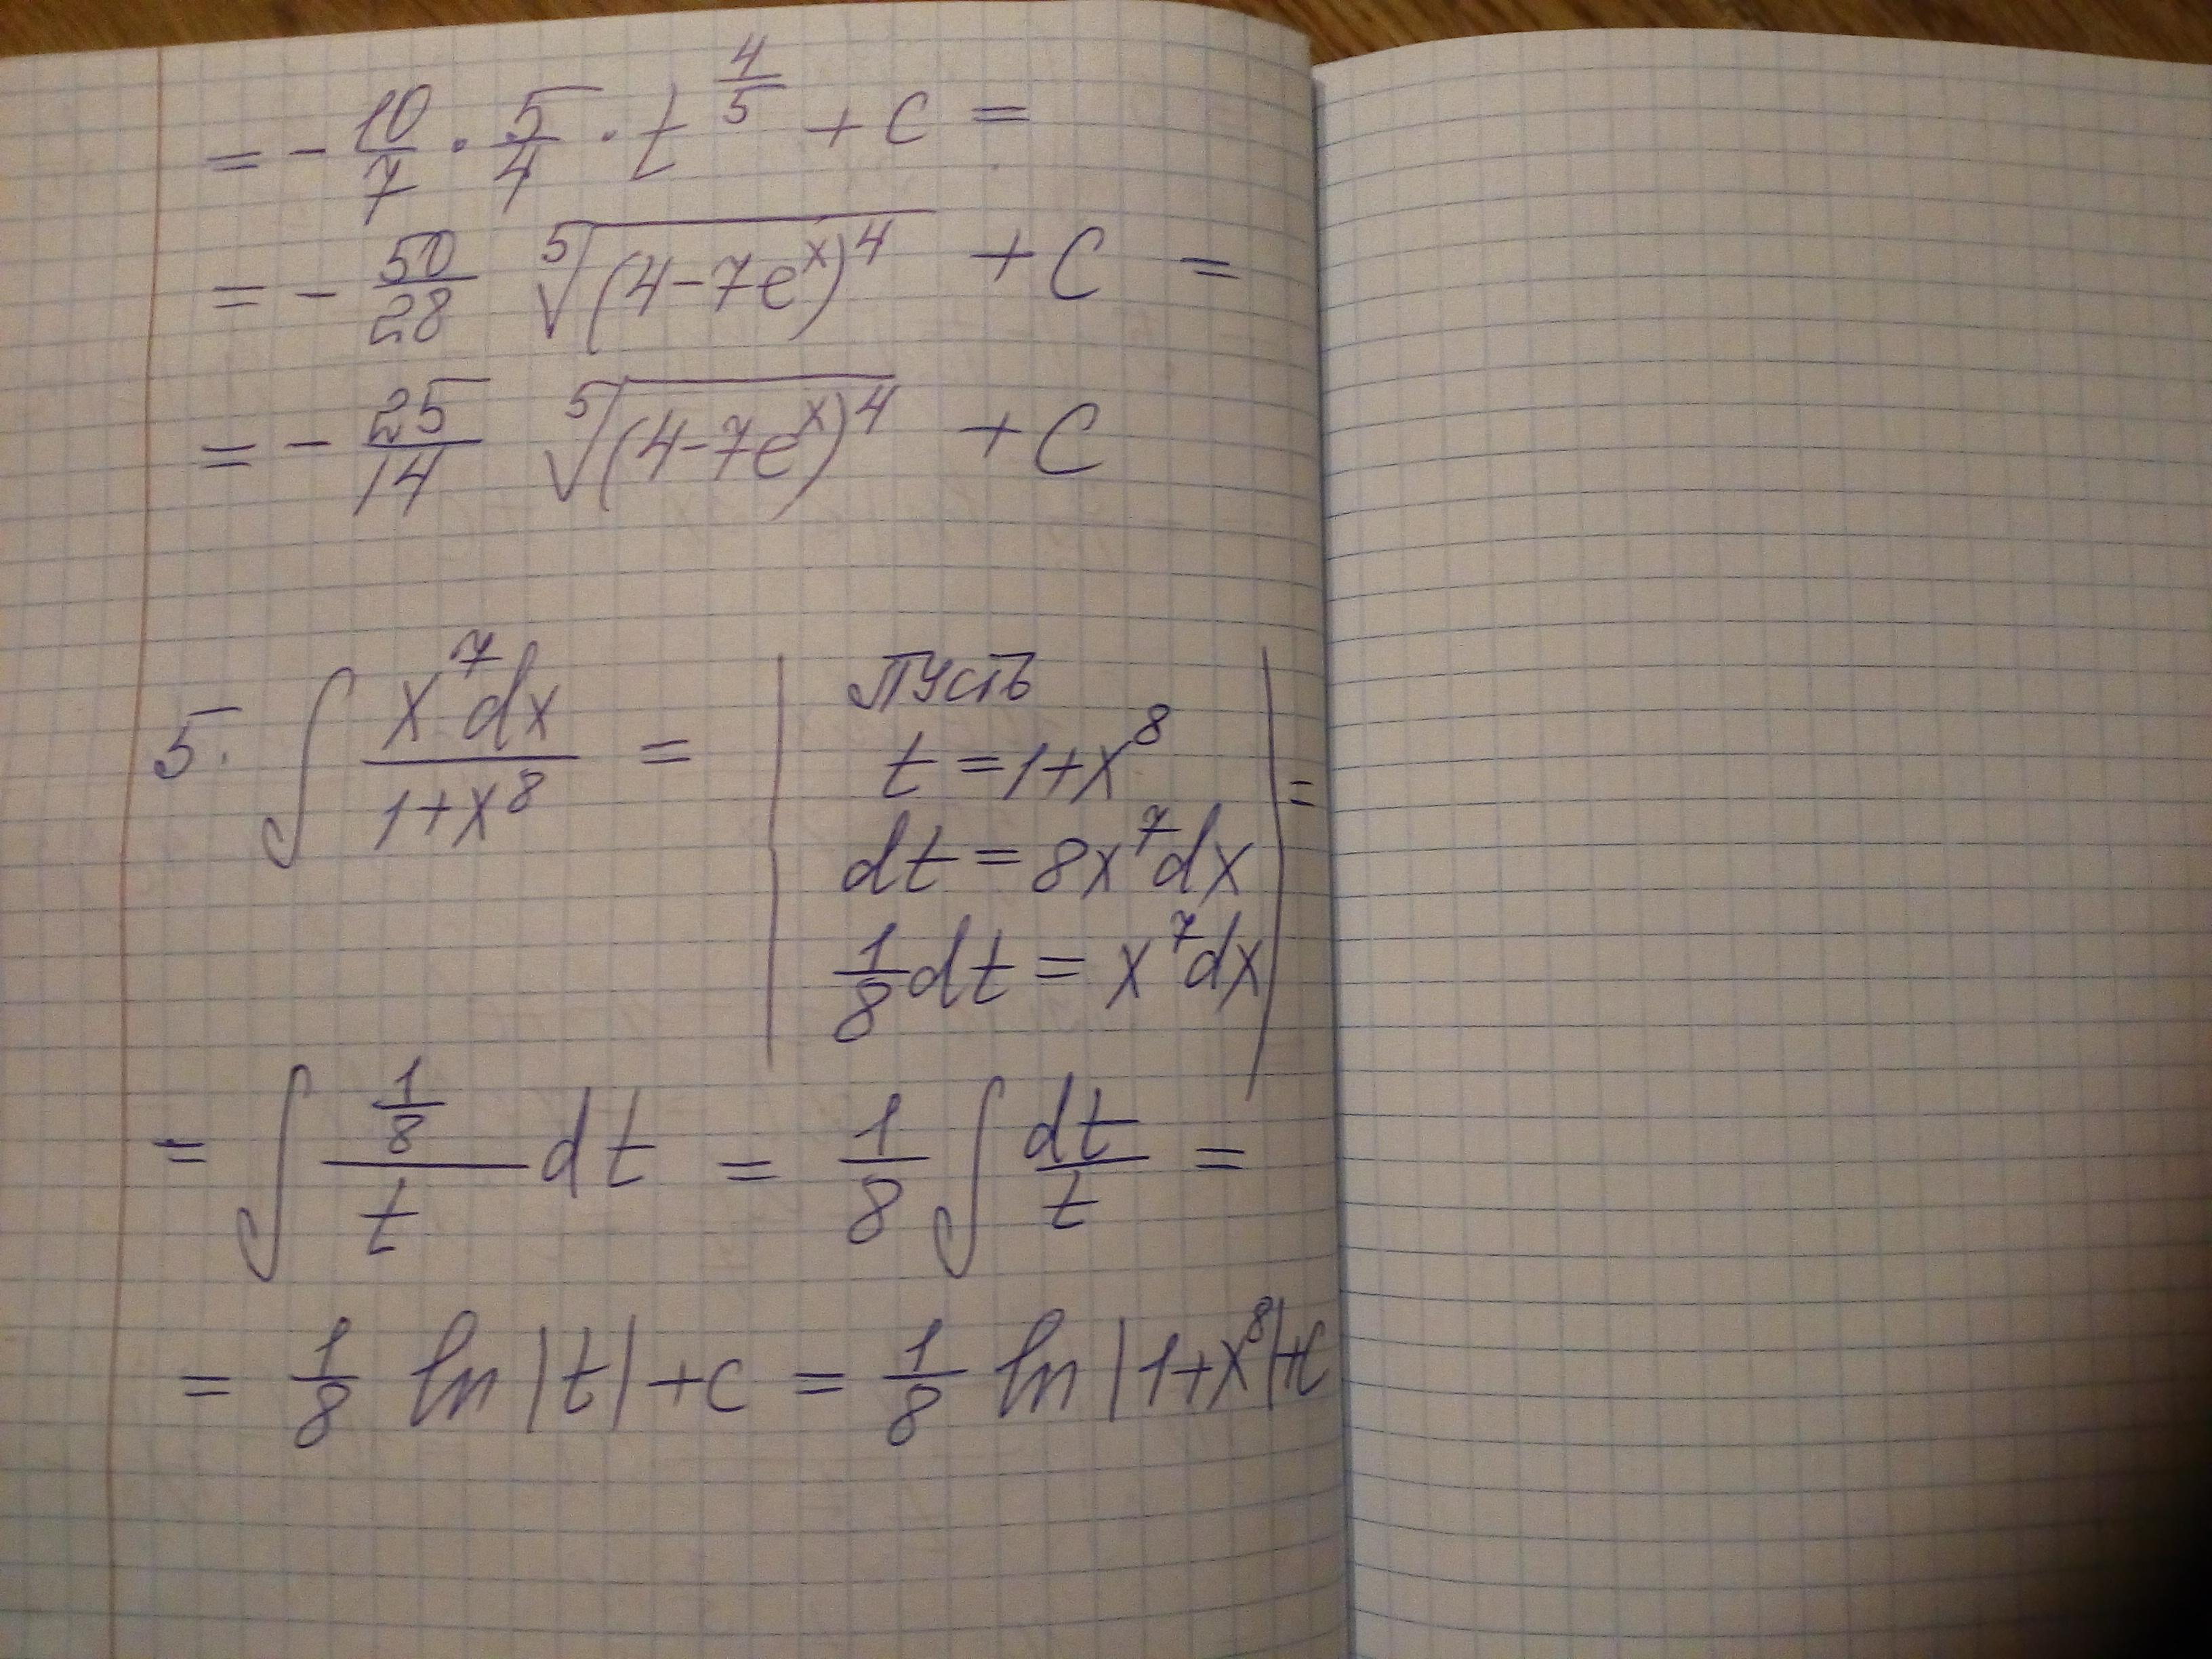 = - 10/7 · 5/4 · t^(4/5) + C =
= - 50/28 ⁵√(4-7e^x)^4 + C =
= - 25/14 ⁵√(4-7e^x)^4 + C
5. ∫ x^7dx / 1+x^8 = | пусть
t = 1+x^8
dt = 8x^7dx
1/8 dt = x^7dx | =
= ∫ (1/8)/t dt = 1/8 ∫ dt/t =
= 1/8 ln|t|+c = 1/8 ln|1+x^8|+c